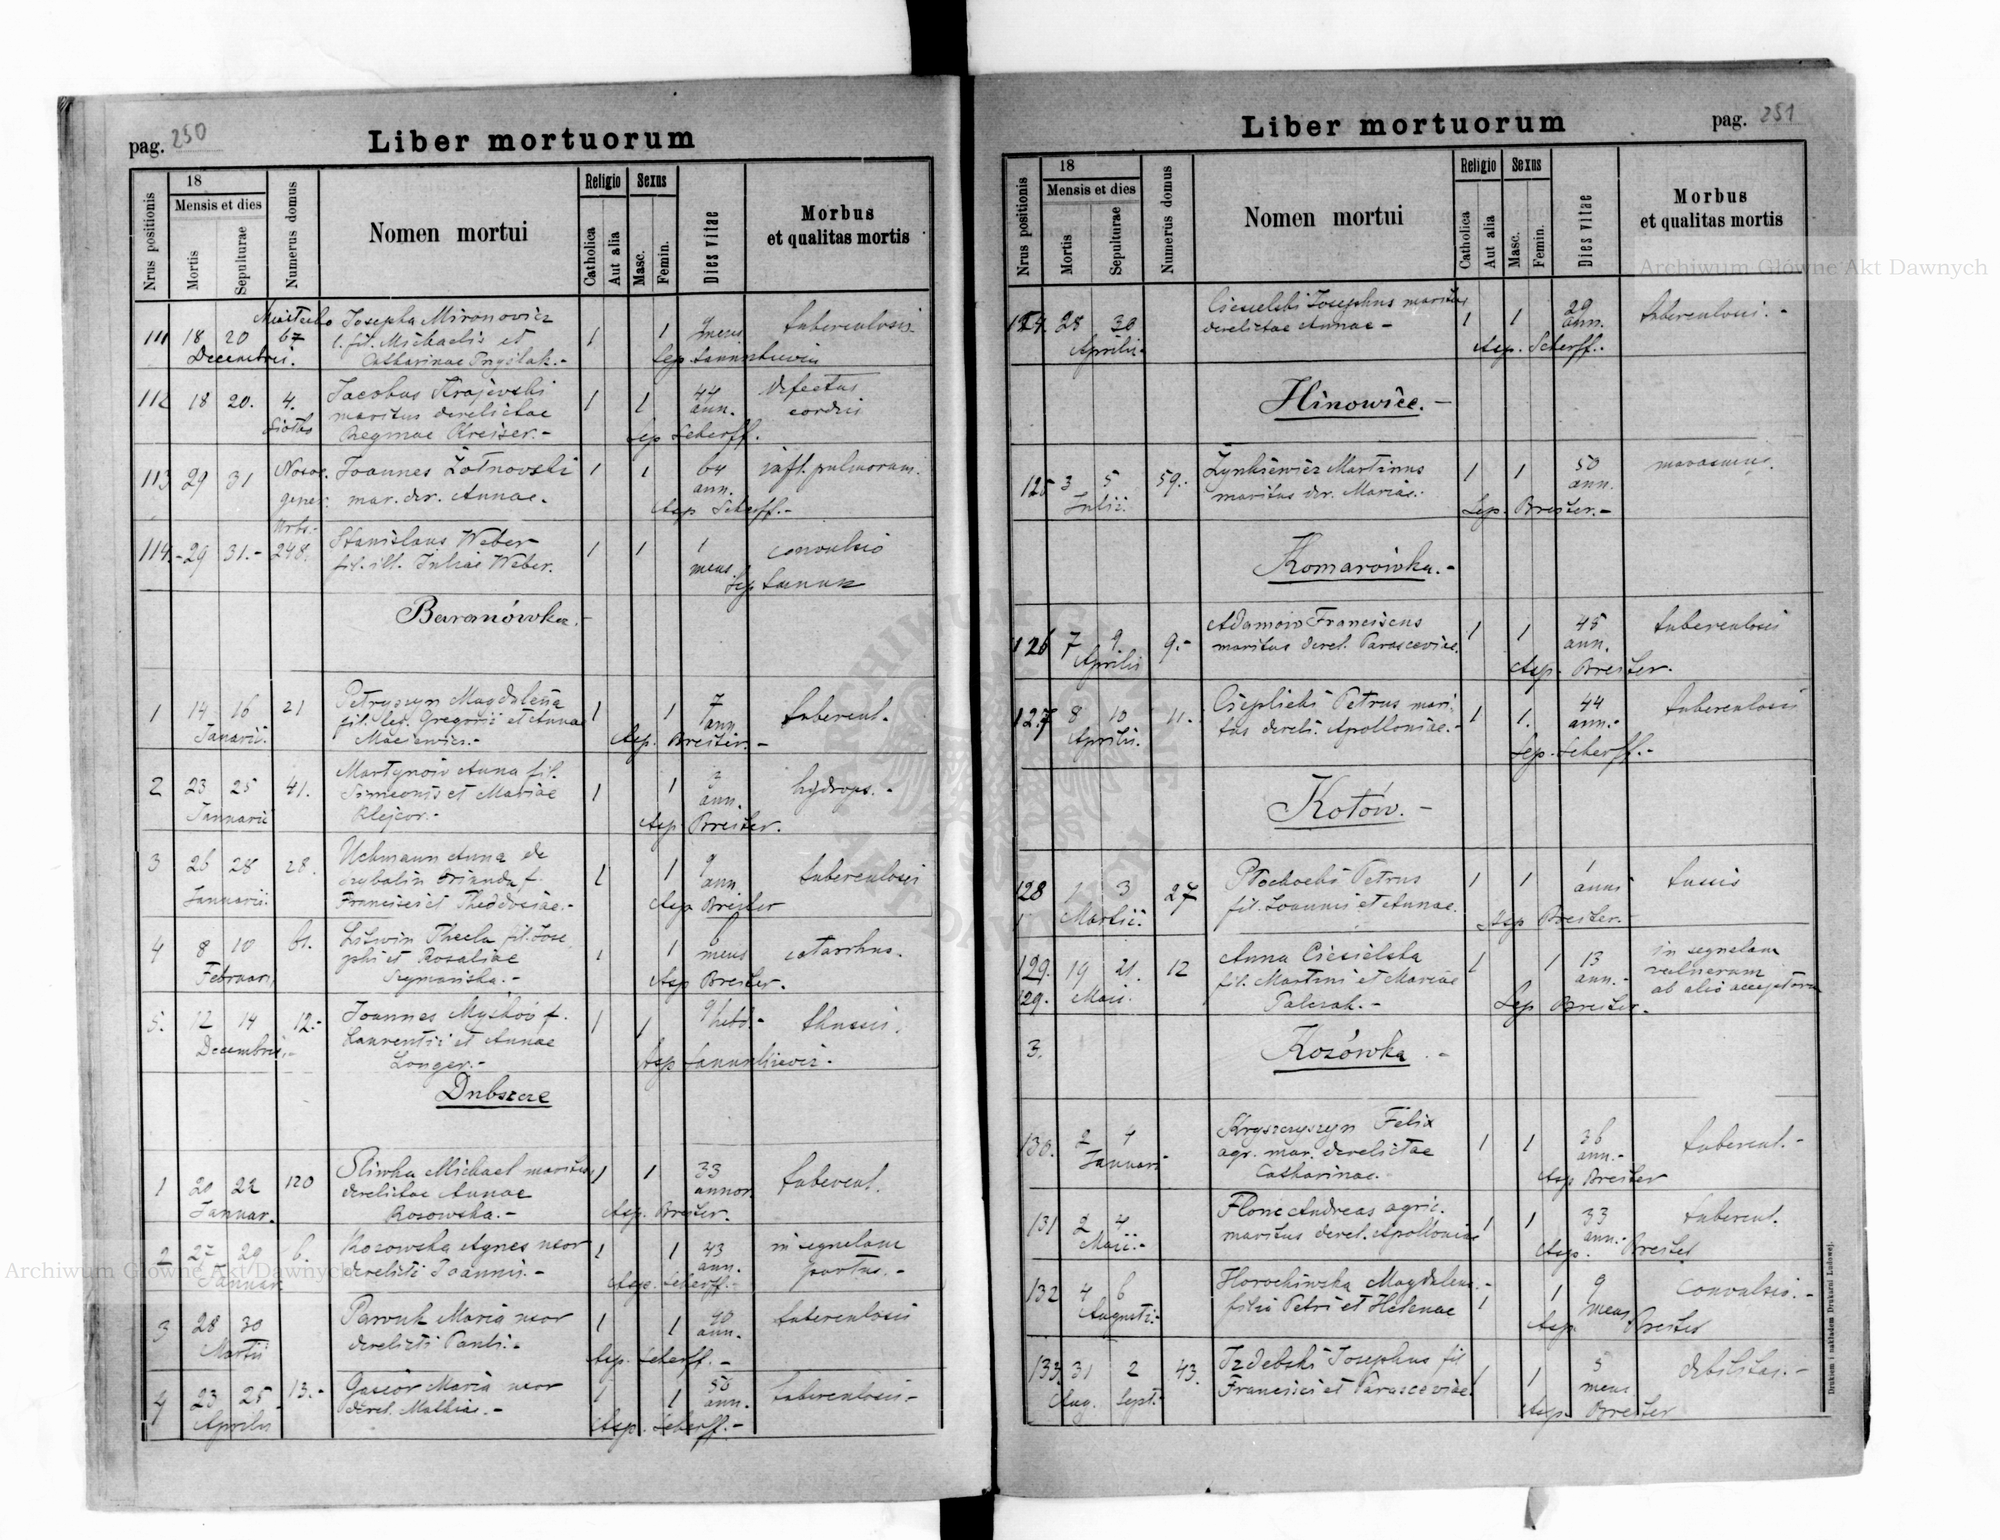 pag. 250
Liber mortuorum
Nrus positionis
18
Mensis et dies
Mortis
Sepulturae
Numerus domus
Nomen mortui
Religio
Catholica
Aut alia
Sexus
Masc.
Femin.
Dies vitae
Morbus
et qualitas mortis
111 18 20 67 Josepha Mironovicz 1 1 9 mens. tuberculosis
Decembris. l. fil. Michaelis et
Catharinae
112 18 20. 4. Jacobus Krajevski 1 1 44 defectus
maritus derelictae ann. cordis
Reginae Kreiser.- Sep Scherff.
113 29 31 Joannes Żołnovski 1 1 64 infl. pulmorum.
mar. der. Annae. ann.
Asp Scherff.-
114.- 29 31.- 248. Stanislaus Weber 1 1 1 convulsio
fil. ill. Juliae Weber. mens
Baranówka.-
1 14 16 21 Petryszyn Magdalena 1 1 7 tubercul.
Januarii. fil. leg. Gregorii et Anna ann
Asp. Breiter.-
2 23 25 41. Martynów Anna fil. 1 1 2 hydrops.-
Januarii Simeonis et Mariae ann.
Olejcor.- Asp Breiter.
3 26 28 28. Uchmann Anna de 1 1 9 tuberculosis
Januarii. ann
Francisci et Theodosiae.- Asp Breiter
4 8 10 61. Litwin Thecla fil. Jose 1 1 mens catarrhus.
Februari phi et Rosaliae
Szymańska.- Asp Breiter.
5. 12 14 12.- Joannes Myśków f. 1 1 9 hebd.- thussis.
Decembris.- Laurentii et Annae
Longer.-
Dubszcze
1 20 22 120 Śliwka Michael maritus 1 1 33 tubercul.
Januar. derelictae Annae annor.
Rosowska.- Asp. Breiter.
2 27 29 6. Kozowska Agnes uxor 1 1 43 in seguelam
Januar. derelicti Joannis.- ann. partus.-
Asp. Scherff.-
3 28 30 Pawuk Maria uxor 1 1 40 tuberculosis
Martii derelicti Pauli.- ann.
Asp. Scherff.-
4 23 25 13.- Gąsiór Maria uxor 1 1 50 tuberculosis-
Aprilis derel. Mathiae.- ann.
Asp. Scherff.-
pag. 251
Liber mortuorum
Nrus positionis
18
Mensis et dies
Mortis
Sepulturae
Numerus domus
Nomen mortui
Religio
Catholica
Aut alia
Sexus
Masc.
Femin.
Dies vitae
Morbus
et qualitas mortis
124. 28 30 Ciesielski Josephus maritus 1 1 29 tuberculosis.-
Aprilis. derelictae Annae- ann.
Asp. Scherff.
Hinowice.-
125 3 5 59.- Zynkiewicz Martinus 1 1 50 marasmus.
Julii. maritus der. Mariae. ann.
Sep. Breiter.-
Komarówka.-
126 7 9 9.- Adamów Franciscus 1 1 45 tuberculosis
Aprilis maritus derel. Parasceviae. ann.
Asp. Breiter.
127 8 10 11.- Cieplicki Petrus mari 1 1. 44 tuberculosis
Aprilis. tus derel. Apolloniae.- ann.-
Sep. Scherff.-
Kotów.-
128 1 3 27 Płochocki Petrus 1 1 1 tussis
Martii. fil. Joannis et Annae. anni
Asp Breiter.-
129. 19 21. 12 Anna Ciesielska 1 1 13 in seguelam
129. Maii. fil. Martini et Mariae ann.- vulnerum
Palczak.- Sep Breiter. ab alio acceptorum
3. Kozówka.-
130. 2 4 Kryszczyszyn Felix 1 1 36 tubercul.-
Januar.- agr. mar. derelictae ann.-
Catharinae. Asp Breiter
131 2 4 Andreas agric. 1 1 33 tubercul.
Maii.- maritus derel. Apolloniae ann.-
Asp. Breiter
132 4 6 Horochiwska Magdalena.- 1 1 9 convulsio.-
Augusti.- filia Petri et Helenae mens
Asp. Breiter
133 31 2 43. Izdebski Josephus fil 1 1 5 debilitas.-
Aug. Sept.- Francisci et Parasceviae. mens
Asp. Breiter
Drukiem i nakładem Drukarni Ludowej.
Archiwum Główne Akt Dawnych
Archiwum Główne Akt Dawnych
ARCHIWUM GŁÓWNE AKT DAWNYCH